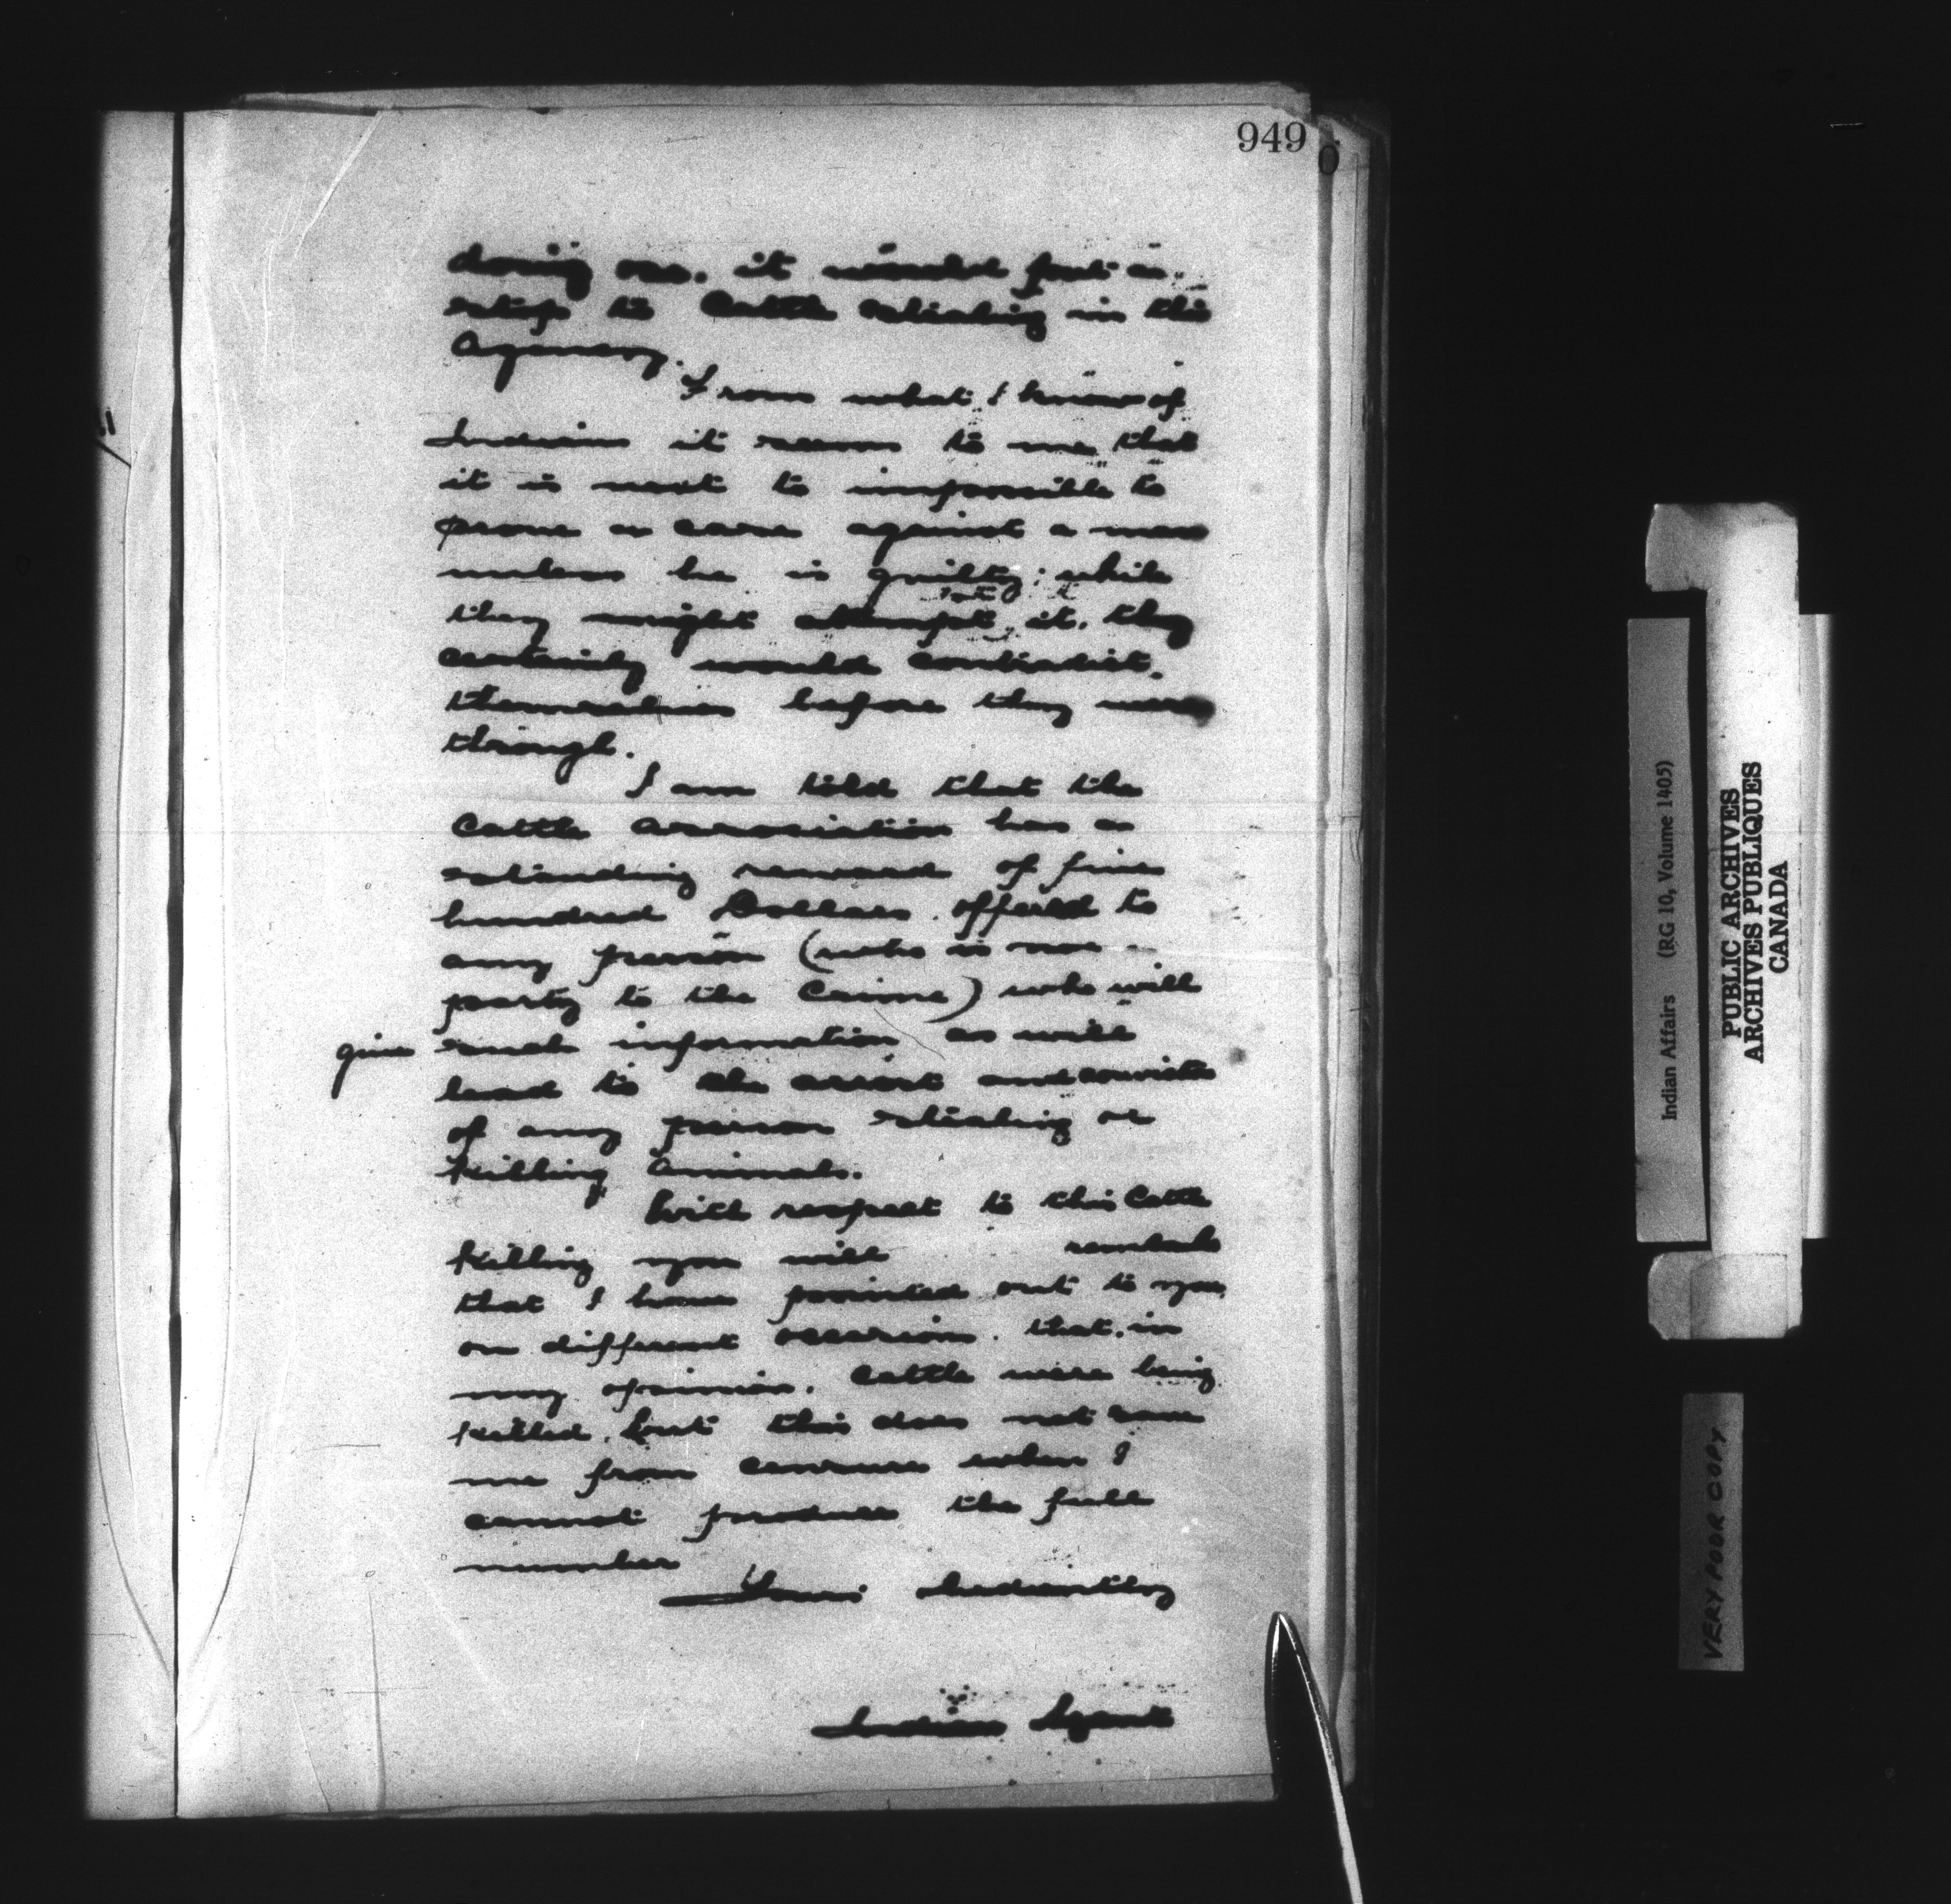 949
doing so. it would put a
stop to Cattle stealing in this
Agency.
From what I know of
Indians it seems to me that
it is next to impossible to
prove a case against a man
unless he is guilty; while
they might attempt it. they
certainly would contradict
themselves before they were
through.
I am told that the
Cattle association has a
standing reward of five
hundred Dollars. offered to
any person (who is not
party to the Crime) who will
give such information as will
lead to the arrest and conviction
of any person stealing or
killing Animals.
With respect to this Cattle
killing you will remember
that I have pointed out to you
on different occasions. that. in
my opinion. Cattle were being
killed. but this does not save
me from censure when I
cannot produce the full
number
Yours obediently
Indian Agent
Indian Affairs (RG 10, Volume 1405)
PUBLIC ARCHIVES
ARCHIVES PUBLIQUES
CANADA
VERY POOR COPY